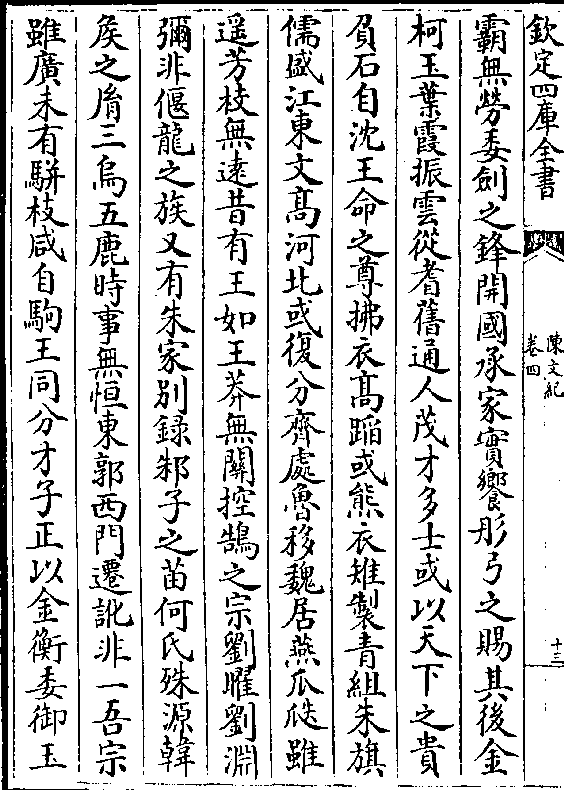 欽定四庫全書
陳文紀
卷四
十三
霸無勞委劍之鋒開國承家實饗彤弓之賜其後金
柯玉葉霞振雲從耆舊通人茂才多士或以天下之貴
負石自沈王命之尊拂衣髙蹈或熊衣雉製青組朱旗
儒盛江東文髙河北或復分齊處魯移魏居燕瓜瓞雖
遥芳枝無逺昔有王如王莽無關控鵠之宗劉曜劉淵
彌非偃龍之族又有朱家别録邾子之苗何氏殊源韓
矦之㣧三烏五鹿時事無恒東郭西門遷訛非一吾宗
雖廣未有駢枝咸自駒王同分才子正以金衡委御玉